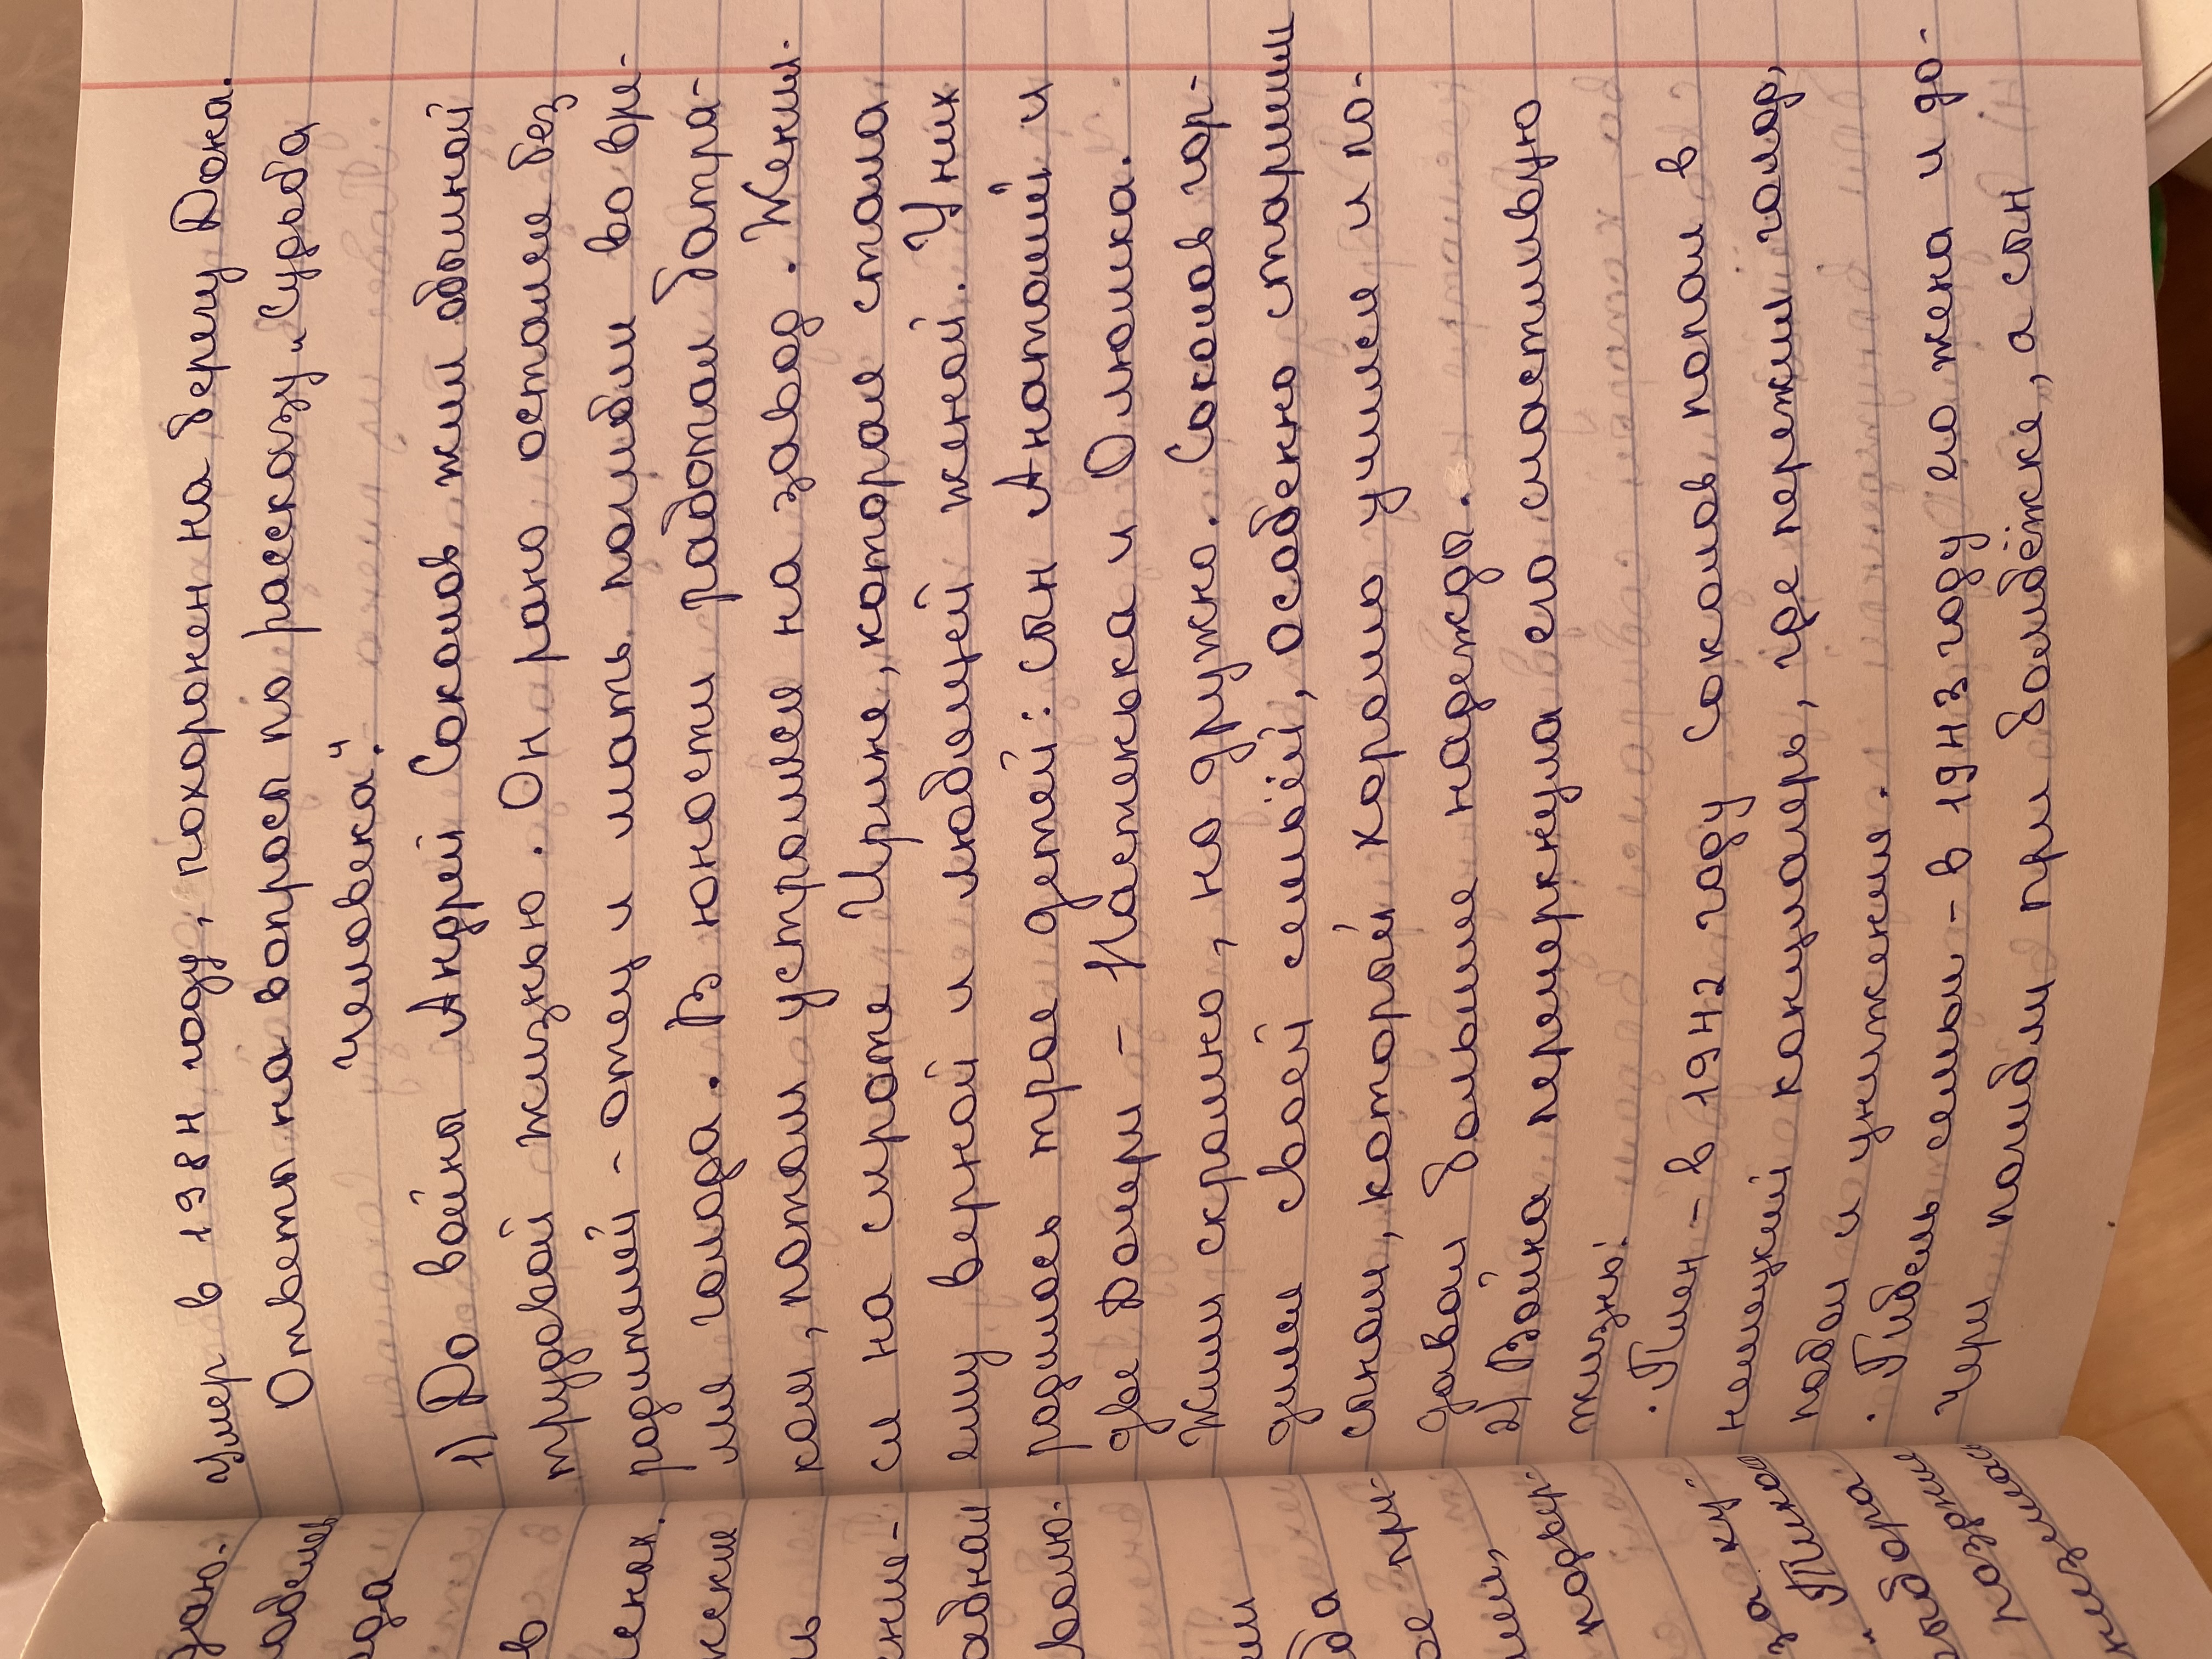 Умер в 1984 году, похоронен на берегу Дона.
Ответы на вопросы по рассказу „Судьба
человека".
1) До войны Андрей Соколов жил обычной
трудовой жизнью. Он рано остался без
родителей - отец и мать погибли во вре-
мя голода. В юности работал батра-
ком, потом устроился на завод. Женил-
ся на сироте Ирине, которая стала
ему верной и любящей женой. У них
родилось трое детей: сын Анатолий и
две дочери - Настенька и Олюшка.
Жили скромно, но дружно. Соколов гор-
дился своей семьёй, особенно старшим
сыном, который хорошо учился и по-
давал большие надежды.
2) Война перечеркнула его счастливую
жизнь:
. Плен - в 1942 году Соколов попал в
немецкий концлагерь, где пережил голод,
побои и унижения.
. Гибель семьи - в 1943 году его жена и до-
чери погибли при бомбёжке, а сын